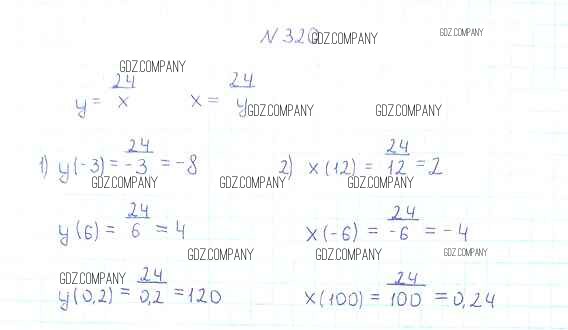 N 320 GDZ.COMPANY GDZ.COMPANY
GDZ.COMPANY
y = 24/x x = 24/y GDZ.COMPANY GDZ.COMPANY
1) y(-3) = 24/-3 = -8 2) x(12) = 24/12 = 2
GDZ.COMPANY GDZ.COMPANY GDZ.COMPANY
y(6) = 24/6 = 4 x(-6) = 24/-6 = -4
GDZ.COMPANY GDZ.COMPANY GDZ.COMPANY
GDZ.COMPANY
y(0,2) = 24/0,2 = 120 x(100) = 24/100 = 0,24